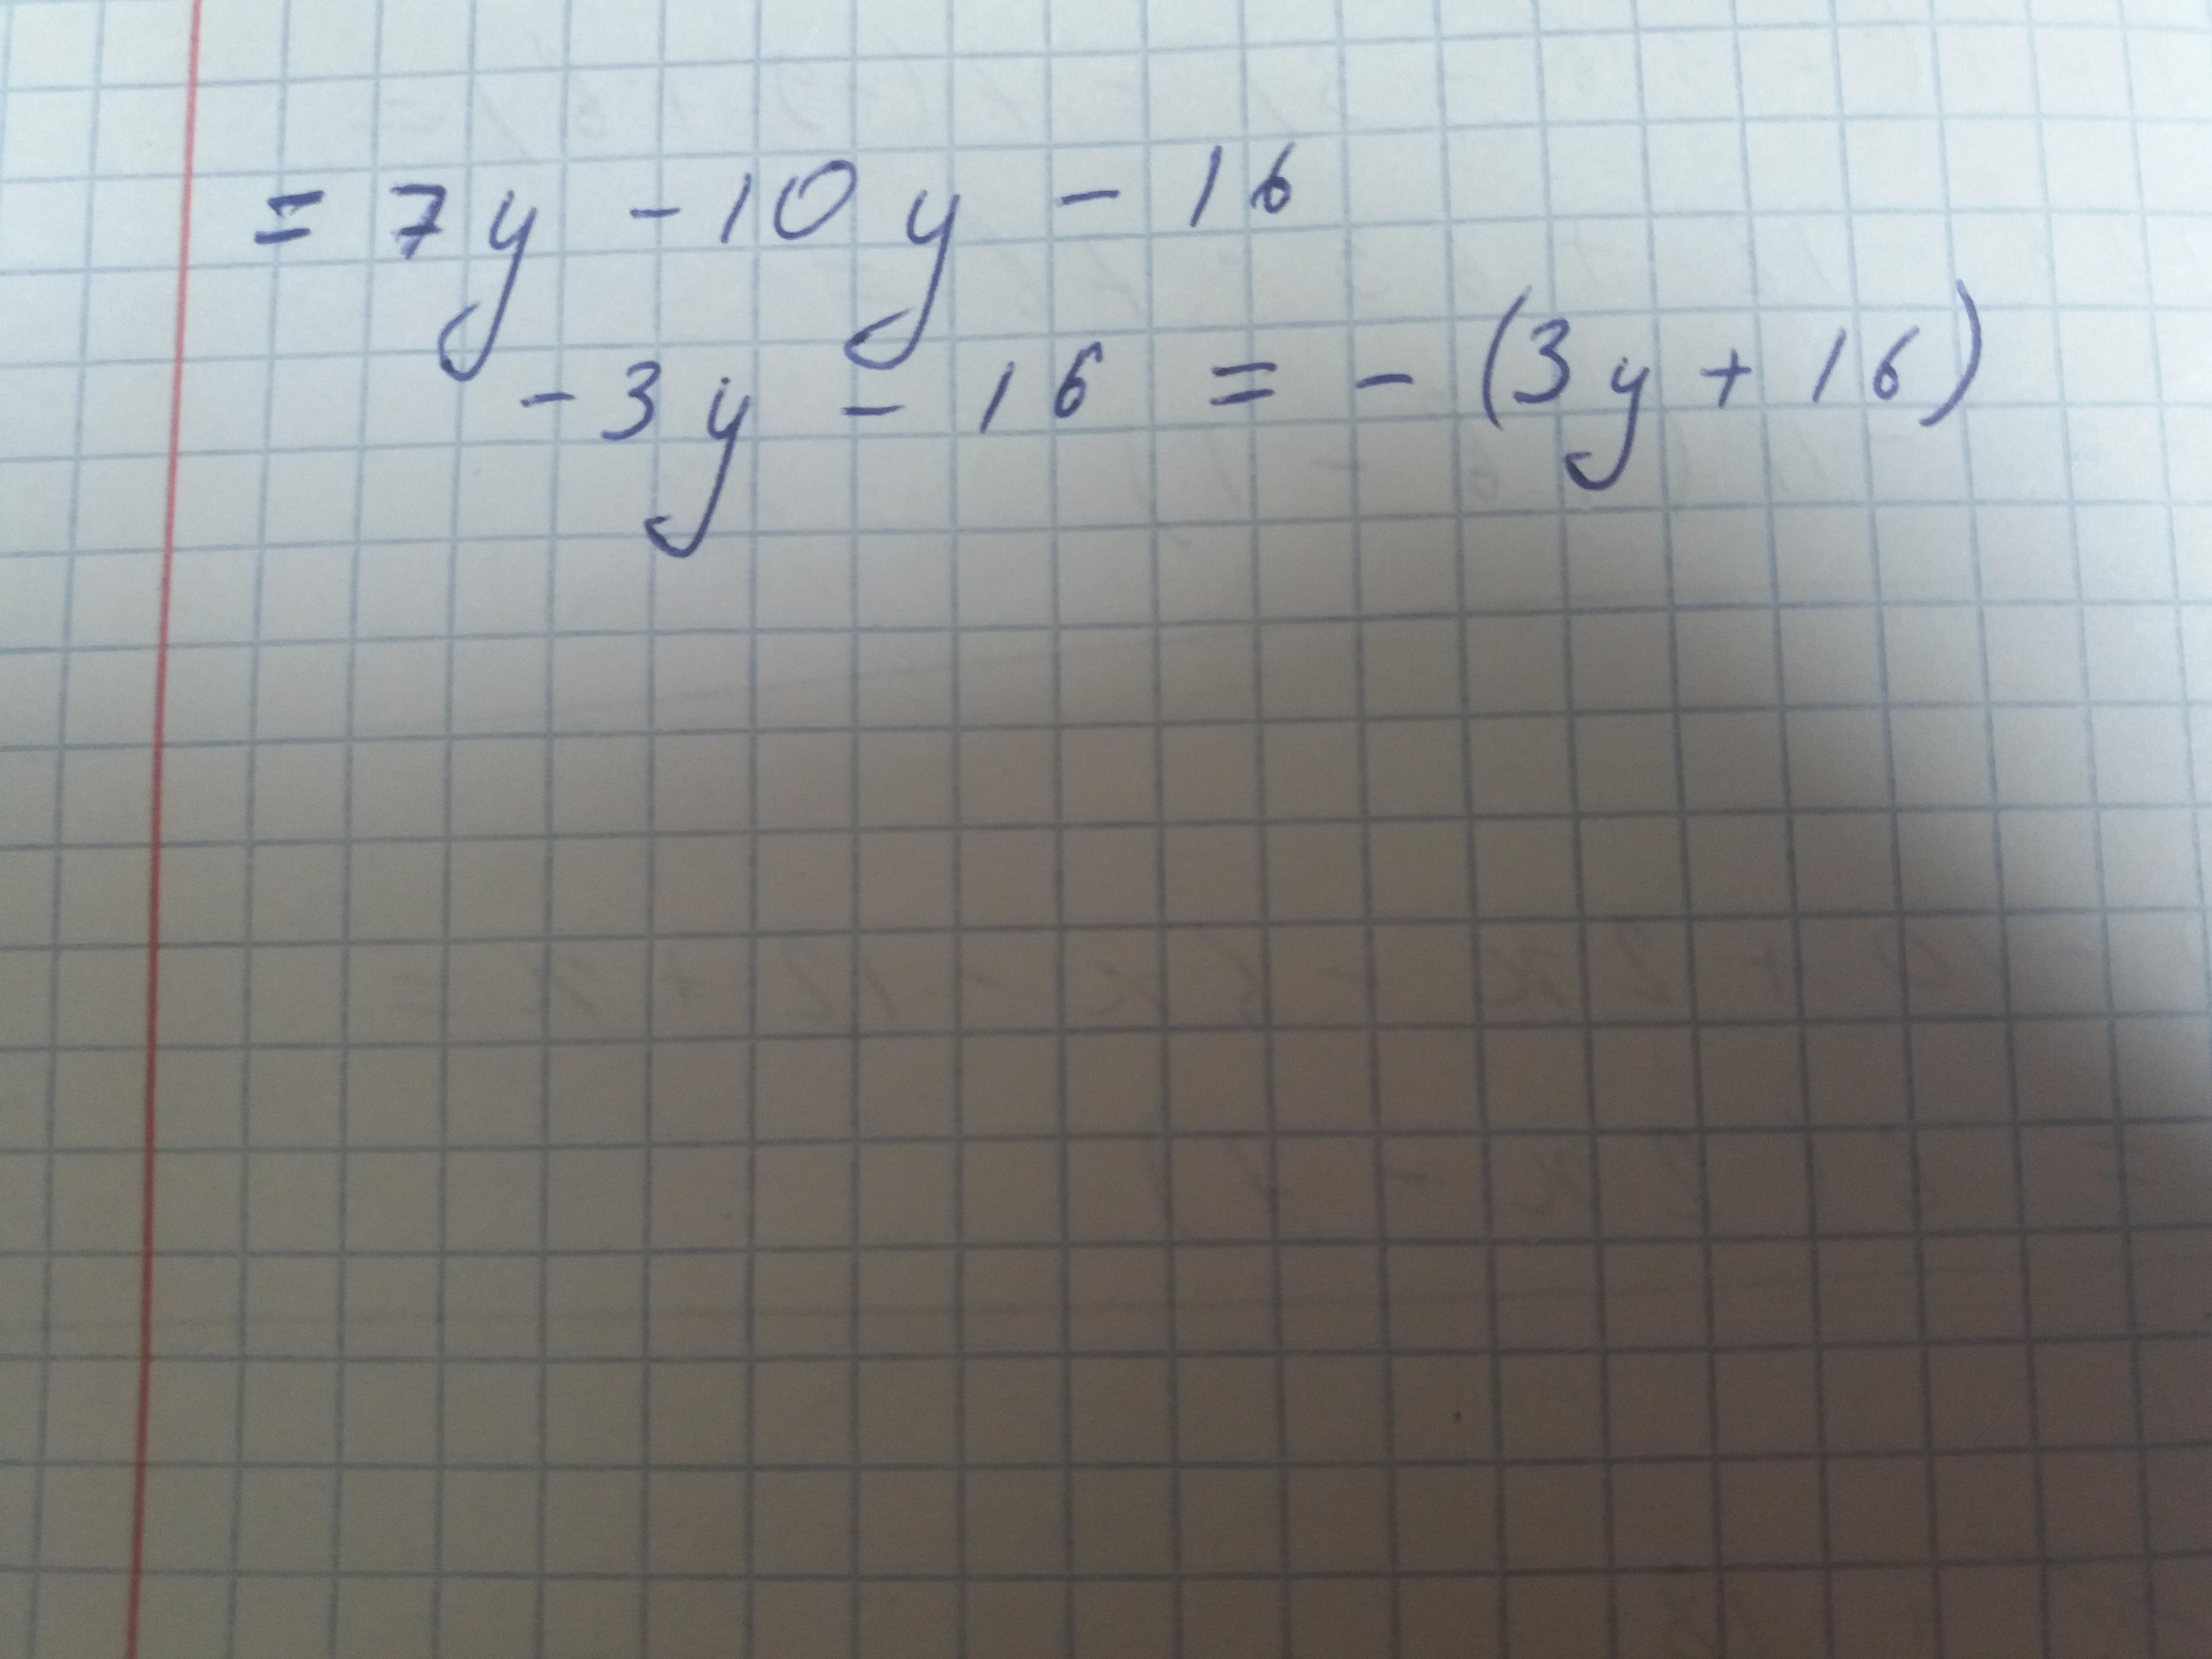 = 7y - 10y - 16
- 3y - 16 = - (3y + 16)